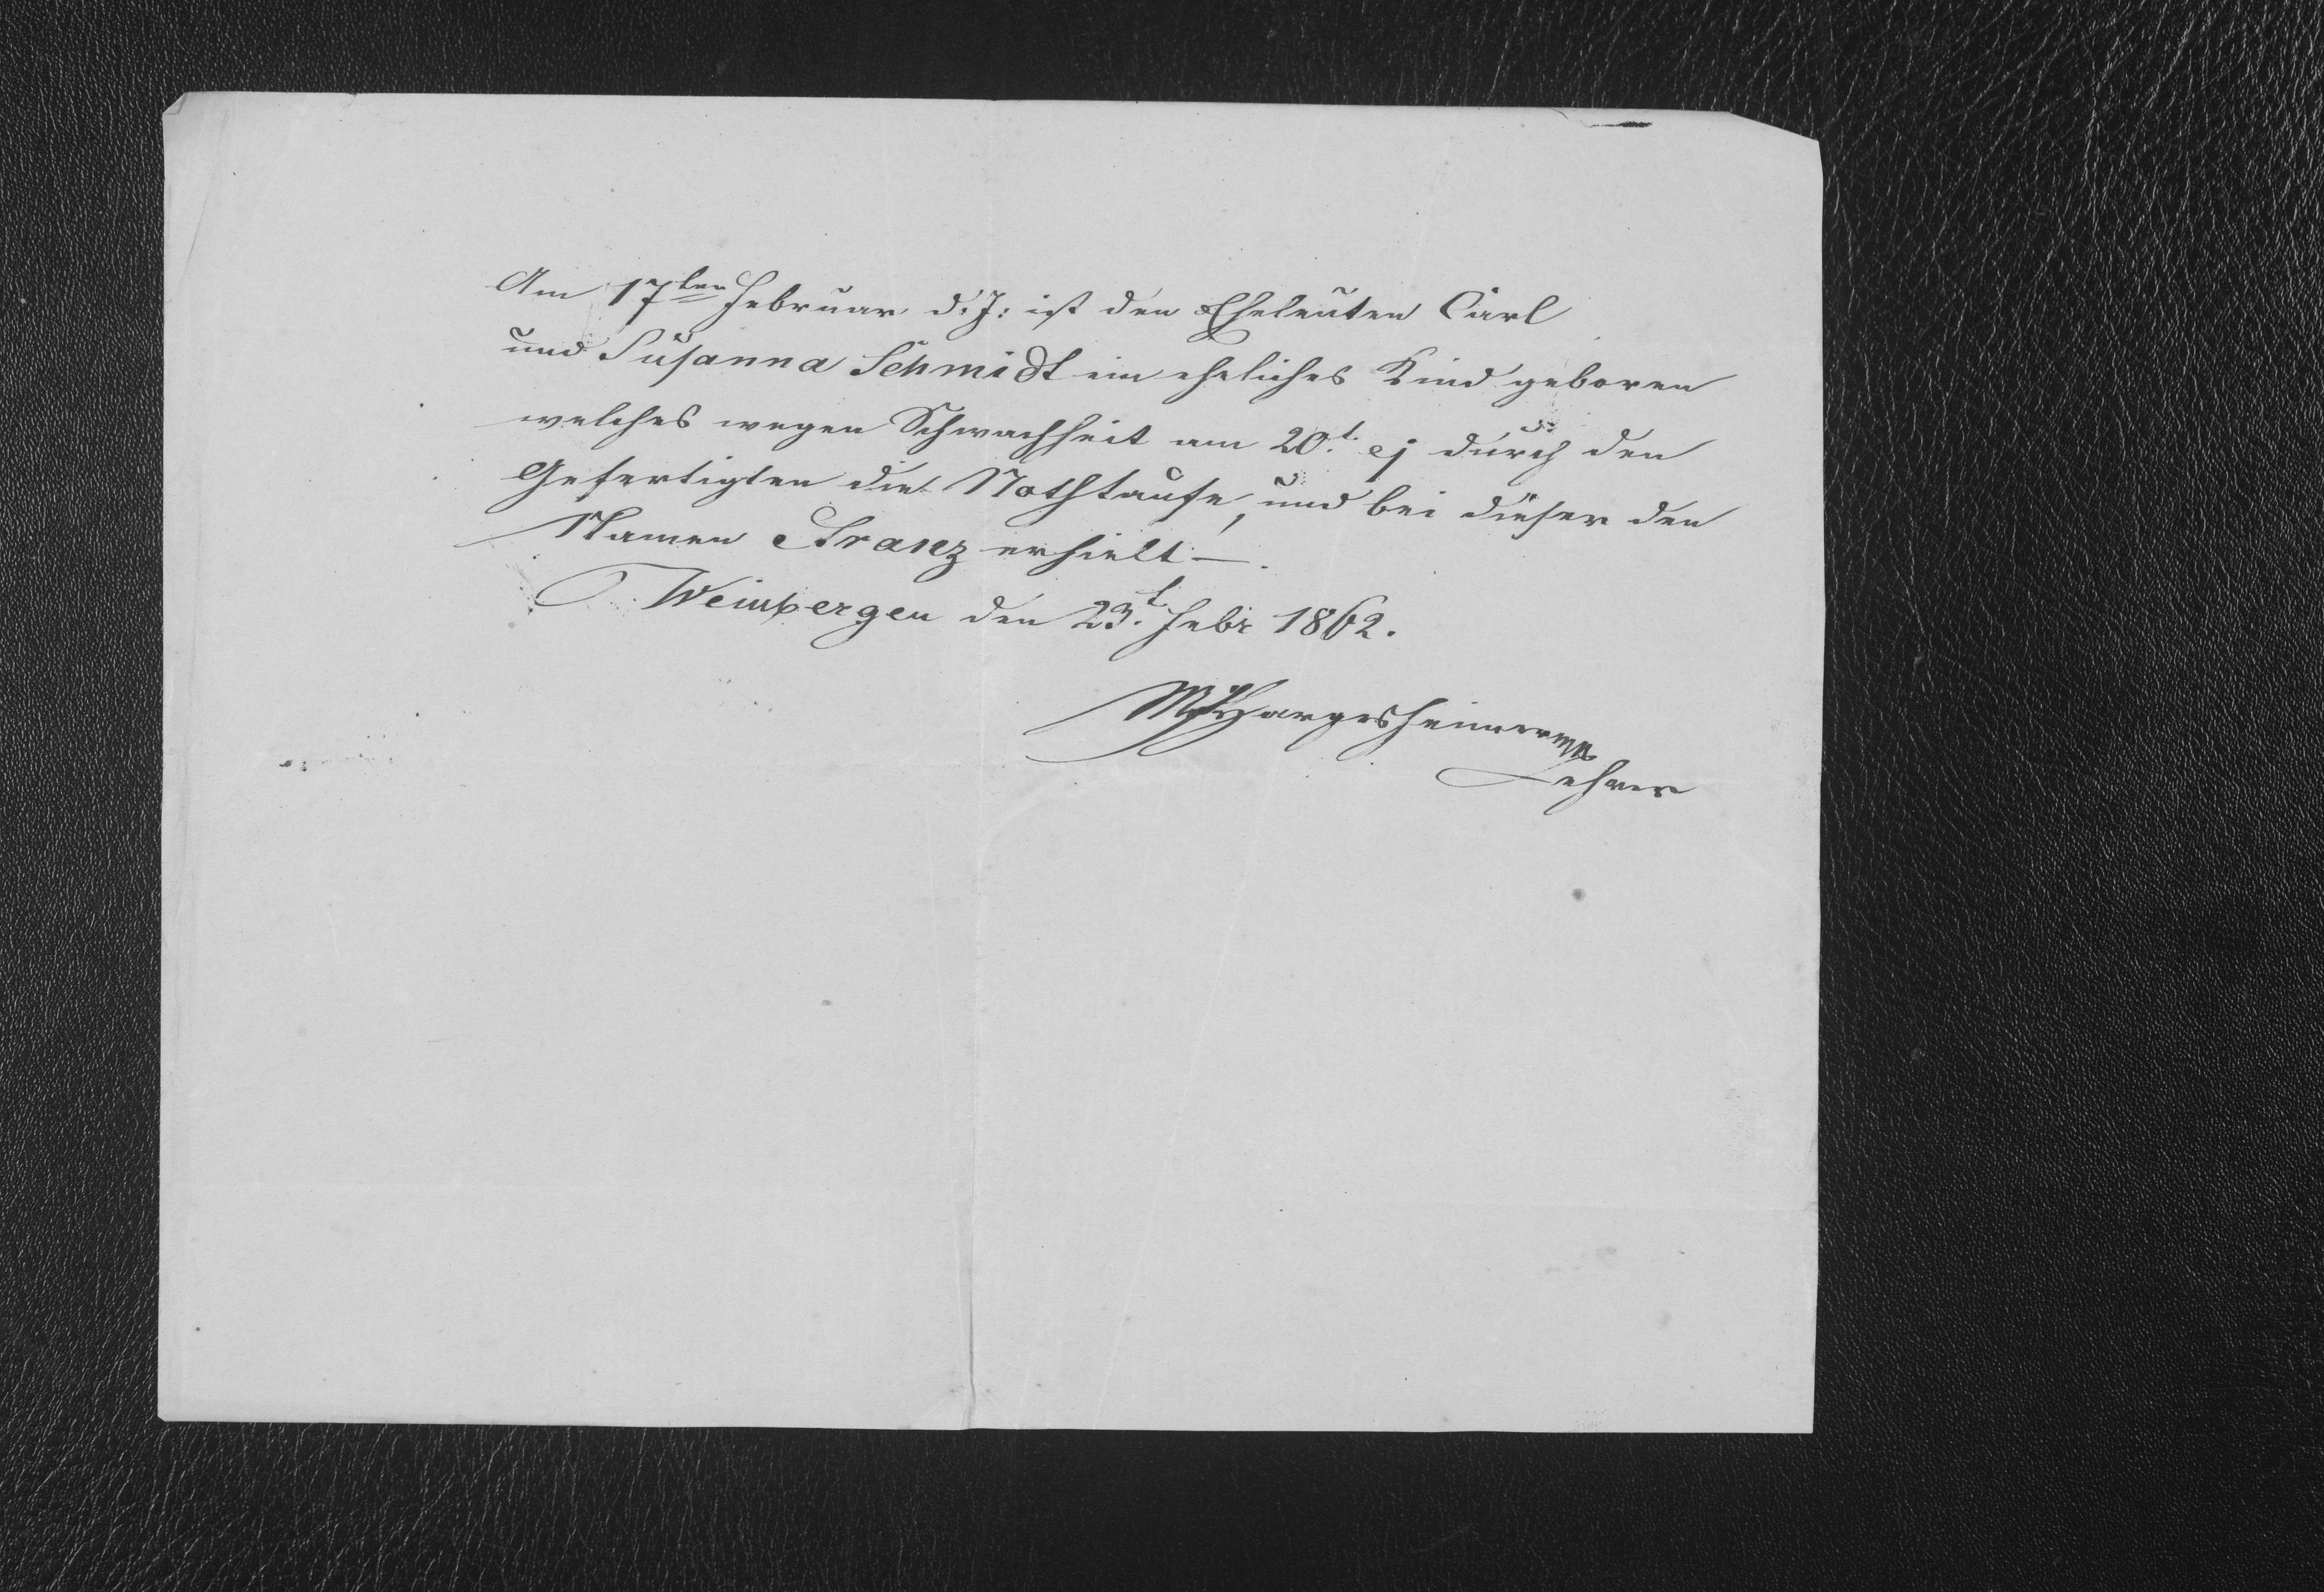 Am 17ten Februar d: J: ist den Eheleuten Carl
und Susanna Schmidt ein eheliches Kind geboren
welches wegen Schwachheit am 20t. ej durch den
Gefertigten die Nothtaufe, und bei dieser den
Namen Franz erhielt —.
Weinbergen den 23t. Febr 1862.
Hargesheimer mp
Lehrer